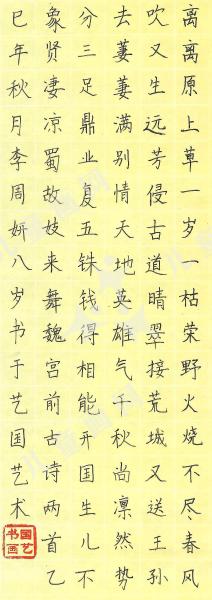 离离原上草一岁一枯荣野火烧不尽春风
吹又生远芳侵古道晴翠接荒城又送王孙
去萋萋满别情天地英雄气千秋尚凛然势
分三足鼎业复五铢钱得相能开国生儿不
象贤凄凉蜀故妓来舞魏宫前古诗两首乙
巳年秋月李周妍八岁书于艺国艺术
国艺书画